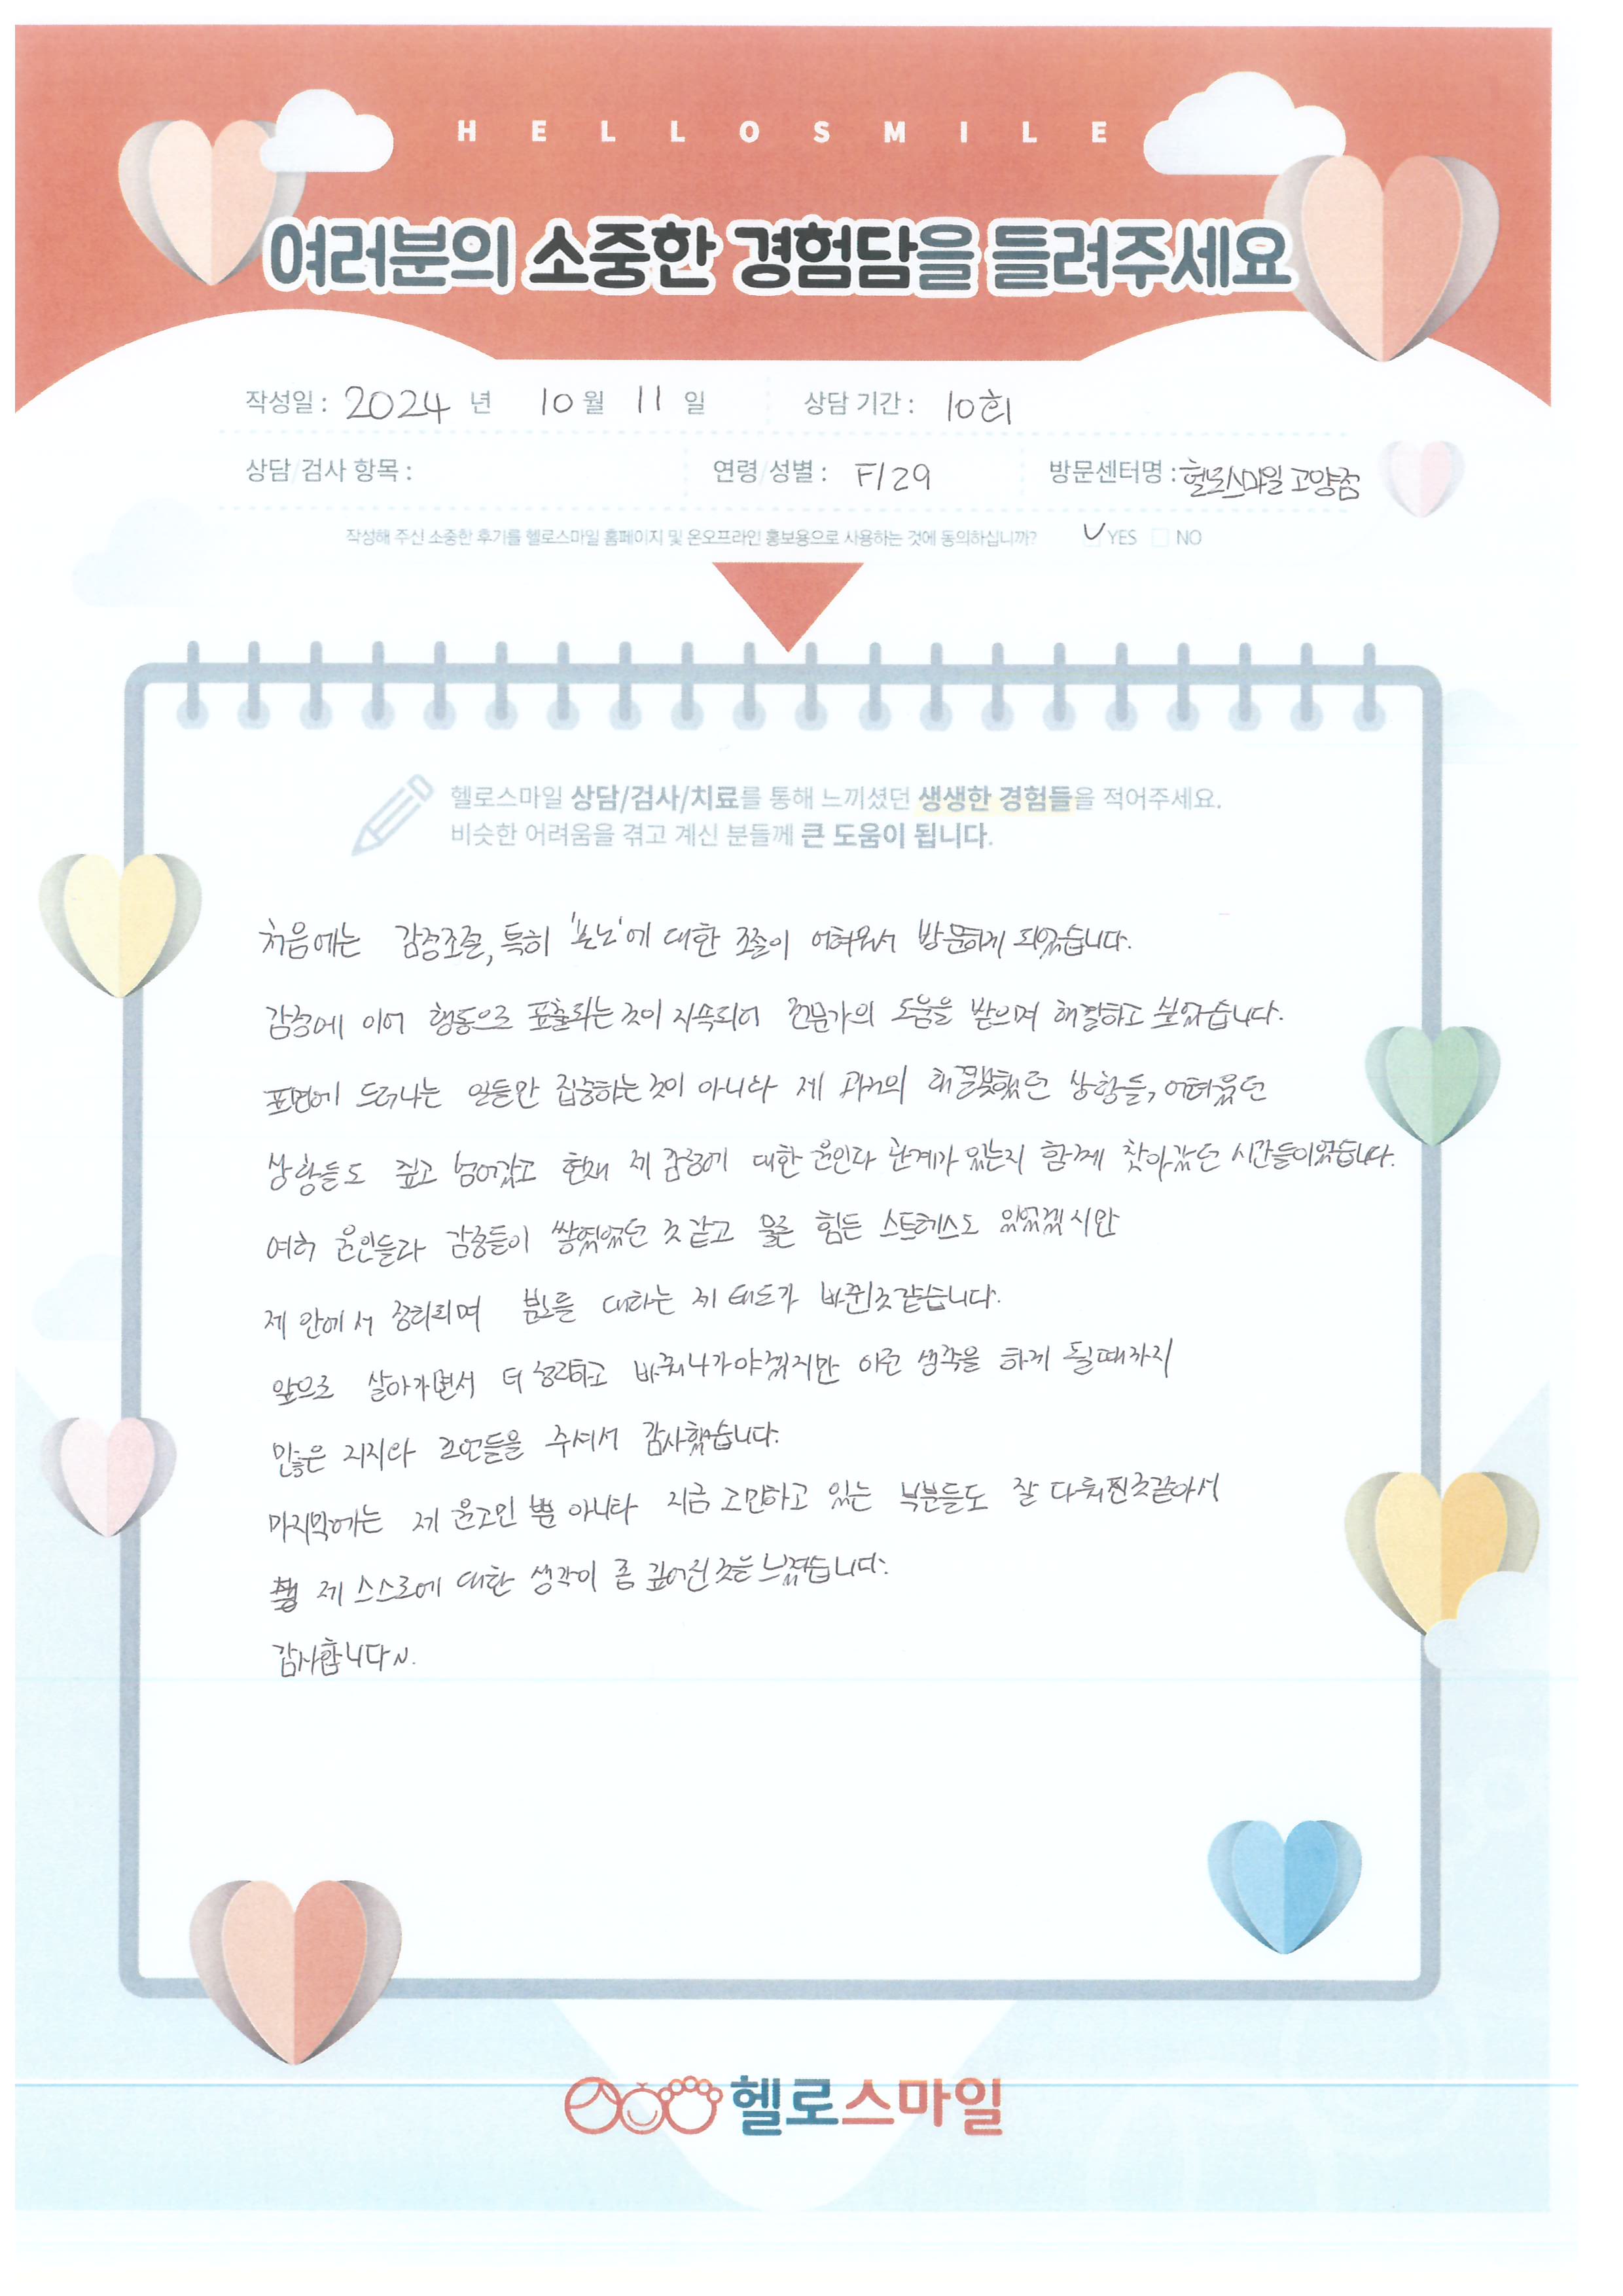 HELLOSMILE
여러분의 소중한 경험담을 들려주세요
작성일 : 2024 년 10 월 11 일 상담 기간 : 10회
상담/검사 항목 : 연령/성별 : F/29 방문센터명 : 헬로스마일 고양점
작성해 주신 소중한 후기를 헬로스마일 홈페이지 및 온오프라인 홍보용으로 사용하는 것에 동의하십니까? YES NO
헬로스마일 상담/검사/치료를 통해 느끼셨던 생생한 경험들을 적어주세요.
비슷한 어려움을 겪고 계신 분들께 큰 도움이 됩니다.
처음에는 감정조절, 특히 '분노'에 대한 조절이 어려워서 방문하게 되었습니다.
감정에 이어 행동으로 표출되는 것이 지속되어 전문가의 도움을 받으며 해결하고 싶었습니다.
표면에 드러나는 일들만 집중하는 것이 아니라 제 과거의 해결못했던 상황들, 어려웠던
상황들도 짚고 넘어갔고 현재 제 감정에 대한 원인과 관계가 있는지 함께 찾아갔던 시간들이었습니다.
여러 원인들과 감정들이 쌓였었던 것 같고 물론 힘든 스트레스도 있었겠지만
제 안에서 정리되며 분노를 대하는 제 태도가 바뀐것같습니다.
앞으로 살아가면서 더 정리하고 바꿔나가야겠지만 이런 생각을 하게 될때까지
많은 지지와 조언들을 주셔서 감사했습니다.
마지막에는 제 원고민 뿐 아니라 지금 고민하고 있는 부분들도 잘 다뤄진것같아서
제 스스로에 대한 생각이 좀 깊어진 것을 느꼈습니다.
감사합니다~.
헬로스마일